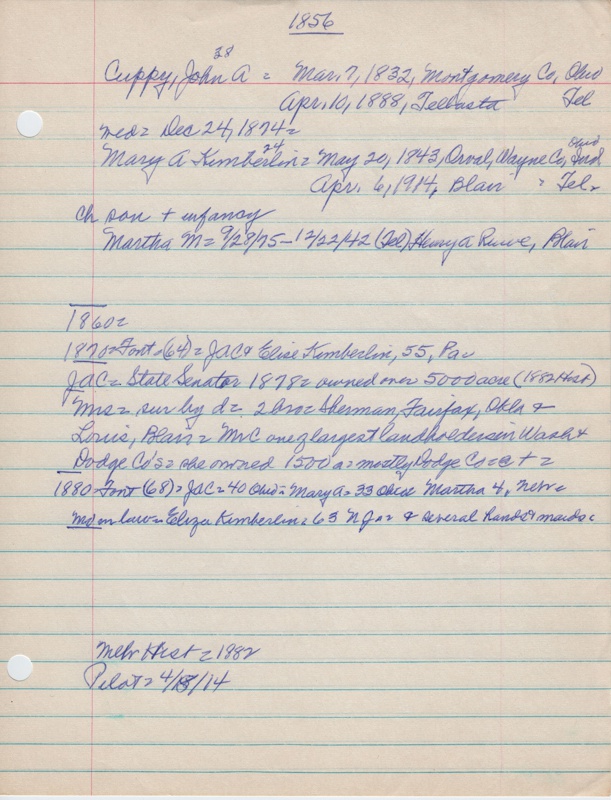 1856
38
Cuppy, John A = Mar. 7, 1832, Montgomery Co, Ohio
Apr. 10, 1888, Telbasta Tel
med = Dec 24, 1874 =
24 Ohio
Mary A Kimberlin = May 20, 1843, Orval, Wayne Co, Ind
Apr. 6, 1914, Blair = Tel =
ch son + infancy
Martha M = 9/28/75 - 12/22/42 (Tel) Henry A Blair
1860 =
1870 = Font = (64) = JAC & Elise Kimberlin, 55, Pa =
JAC = State Senator 1878 = owned over 5000 acre (1882 Hist)
Mrs = sur by d = 2 bro = Sherman, Fairfax, Okla &
Louis, Blair = Mrs C one of largest landholders in Wash &
Dodge Co's = she owned 1500 a = mostly Dodge Co = e t =
1880 = Font (68) = JAC = 40 Ohio = Mary A = 33 Ohio Martha 4, Nebr =
Mo in law = Eliza Kimberlin = 63 & several hands & maids =
Nebr Hist = 1882
Pilot = 4/ /14